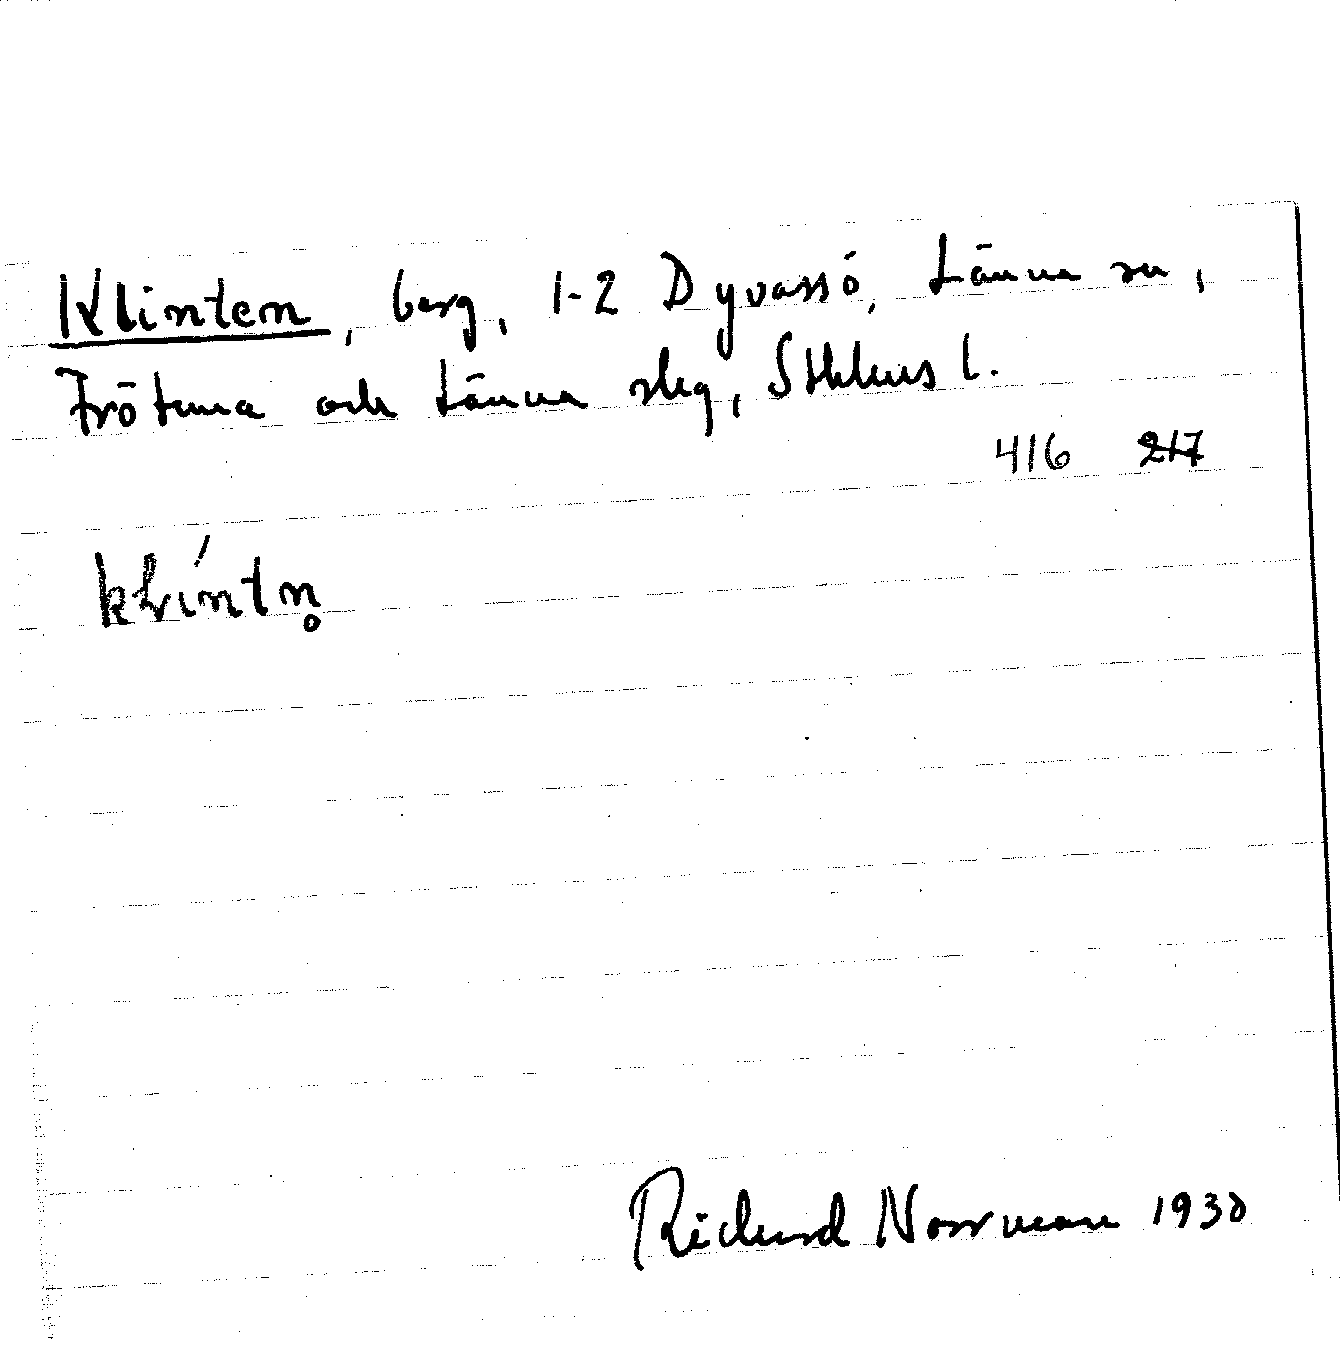 Klinten, berg, 1-2 Dyvassö, Länna sn,
Frötuna och Länna slg, Sthlms l.
416 217
klíntn̥
Richard Norrman 1930